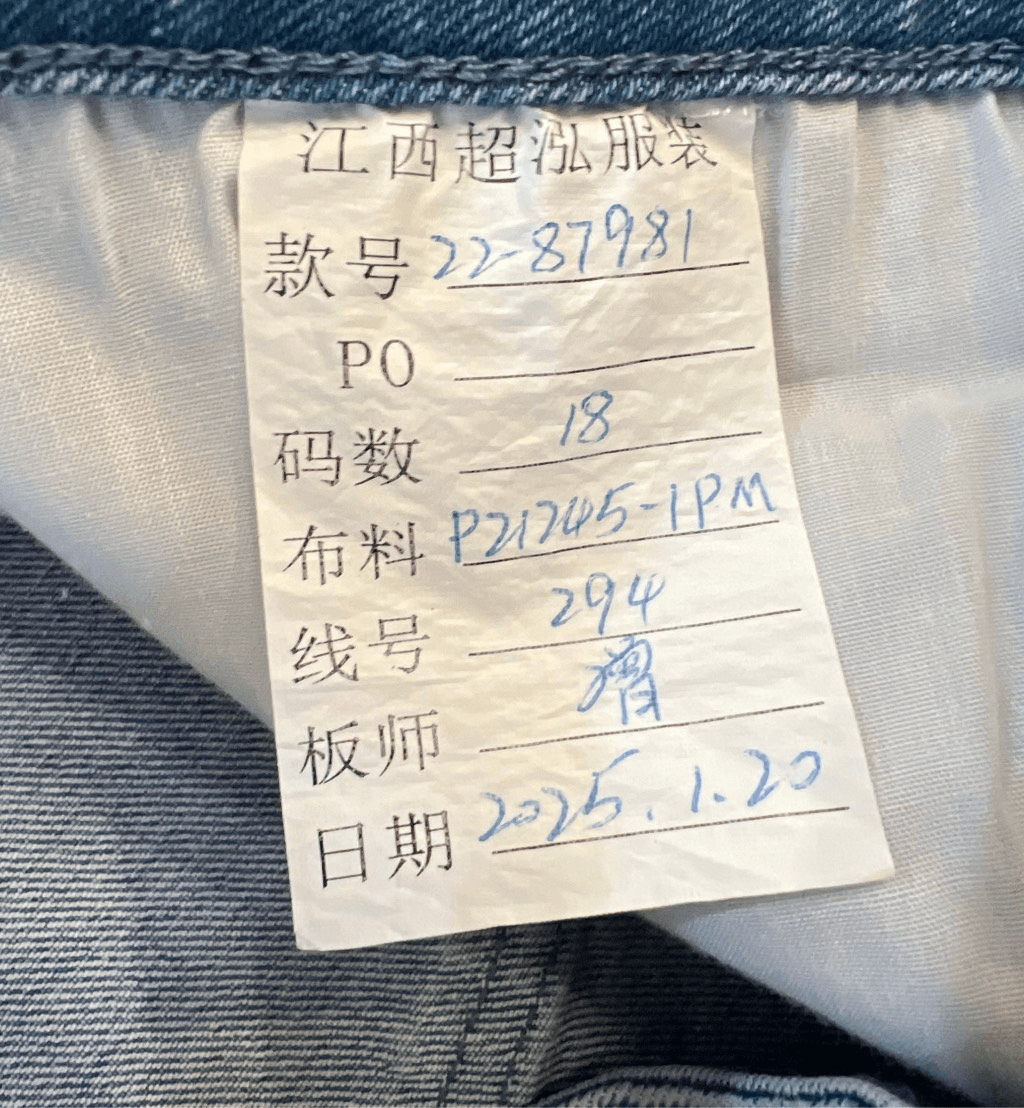 江西超泓服装
款号 22-87981
PO
码数 18
布料 P21245-1PM
线号 294
板师
日期 2025.1.20